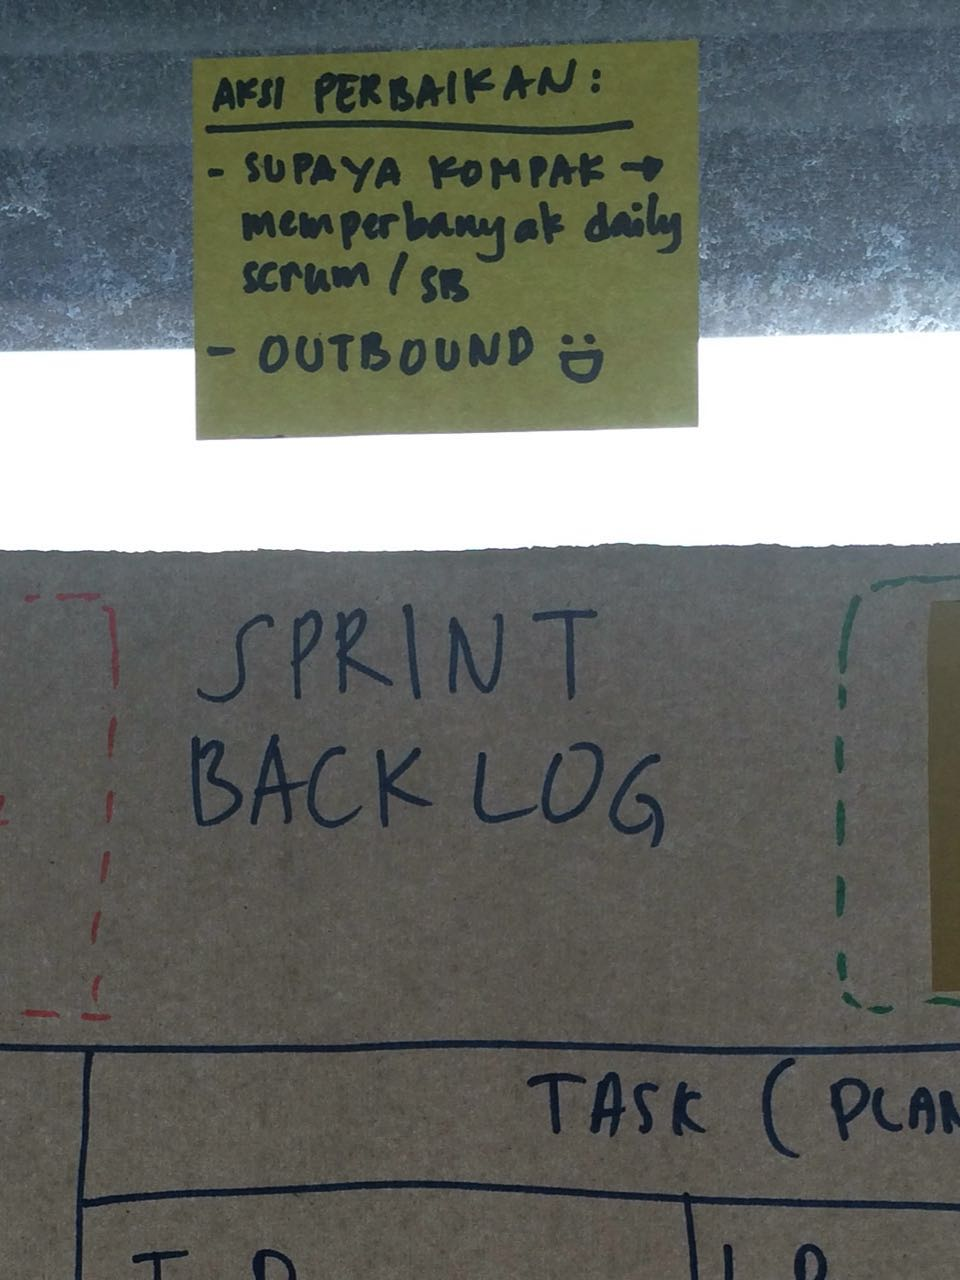 AKSI PERBAIKAN:
- SUPAYA KOMPAK →
memperbanyak daily
scrum / SB
- OUTBOUND
SPRINT
BACKLOG
TASK (